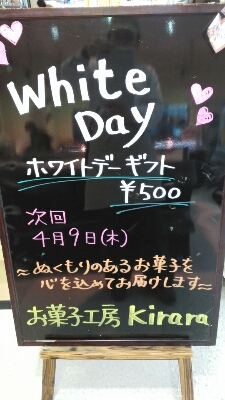 White
Day
ホワイトデーギフト
¥500
次回
4月9日(木)
~ぬくもりのあるお菓子を
心を込めてお届けします~
お菓子工房 Kirara